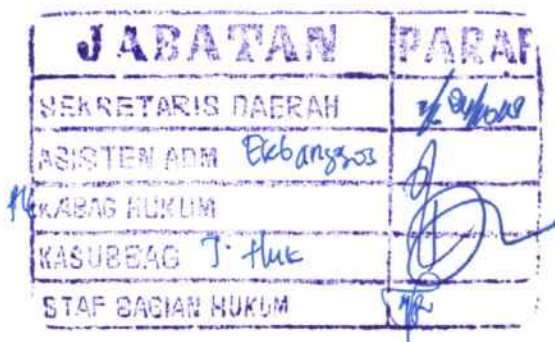 JABATAN PARAF
SEKRETARIS DAERAH
ASISTEN ADM Ekbangsos
KABAG HUKUM
KASUBBAG
STAF BAGIAN HUKUM